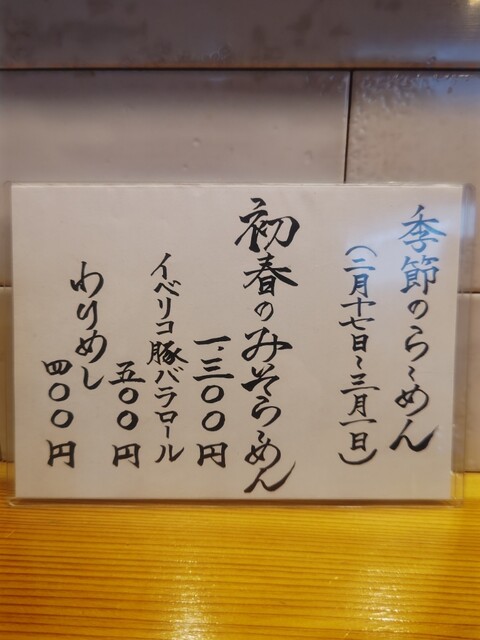 季節のらーめん
(二月十七日~三月一日)
初春のみそらーめん
一.三〇〇円
イベリコ豚バラロール
五〇〇円
わりめし
四〇〇円